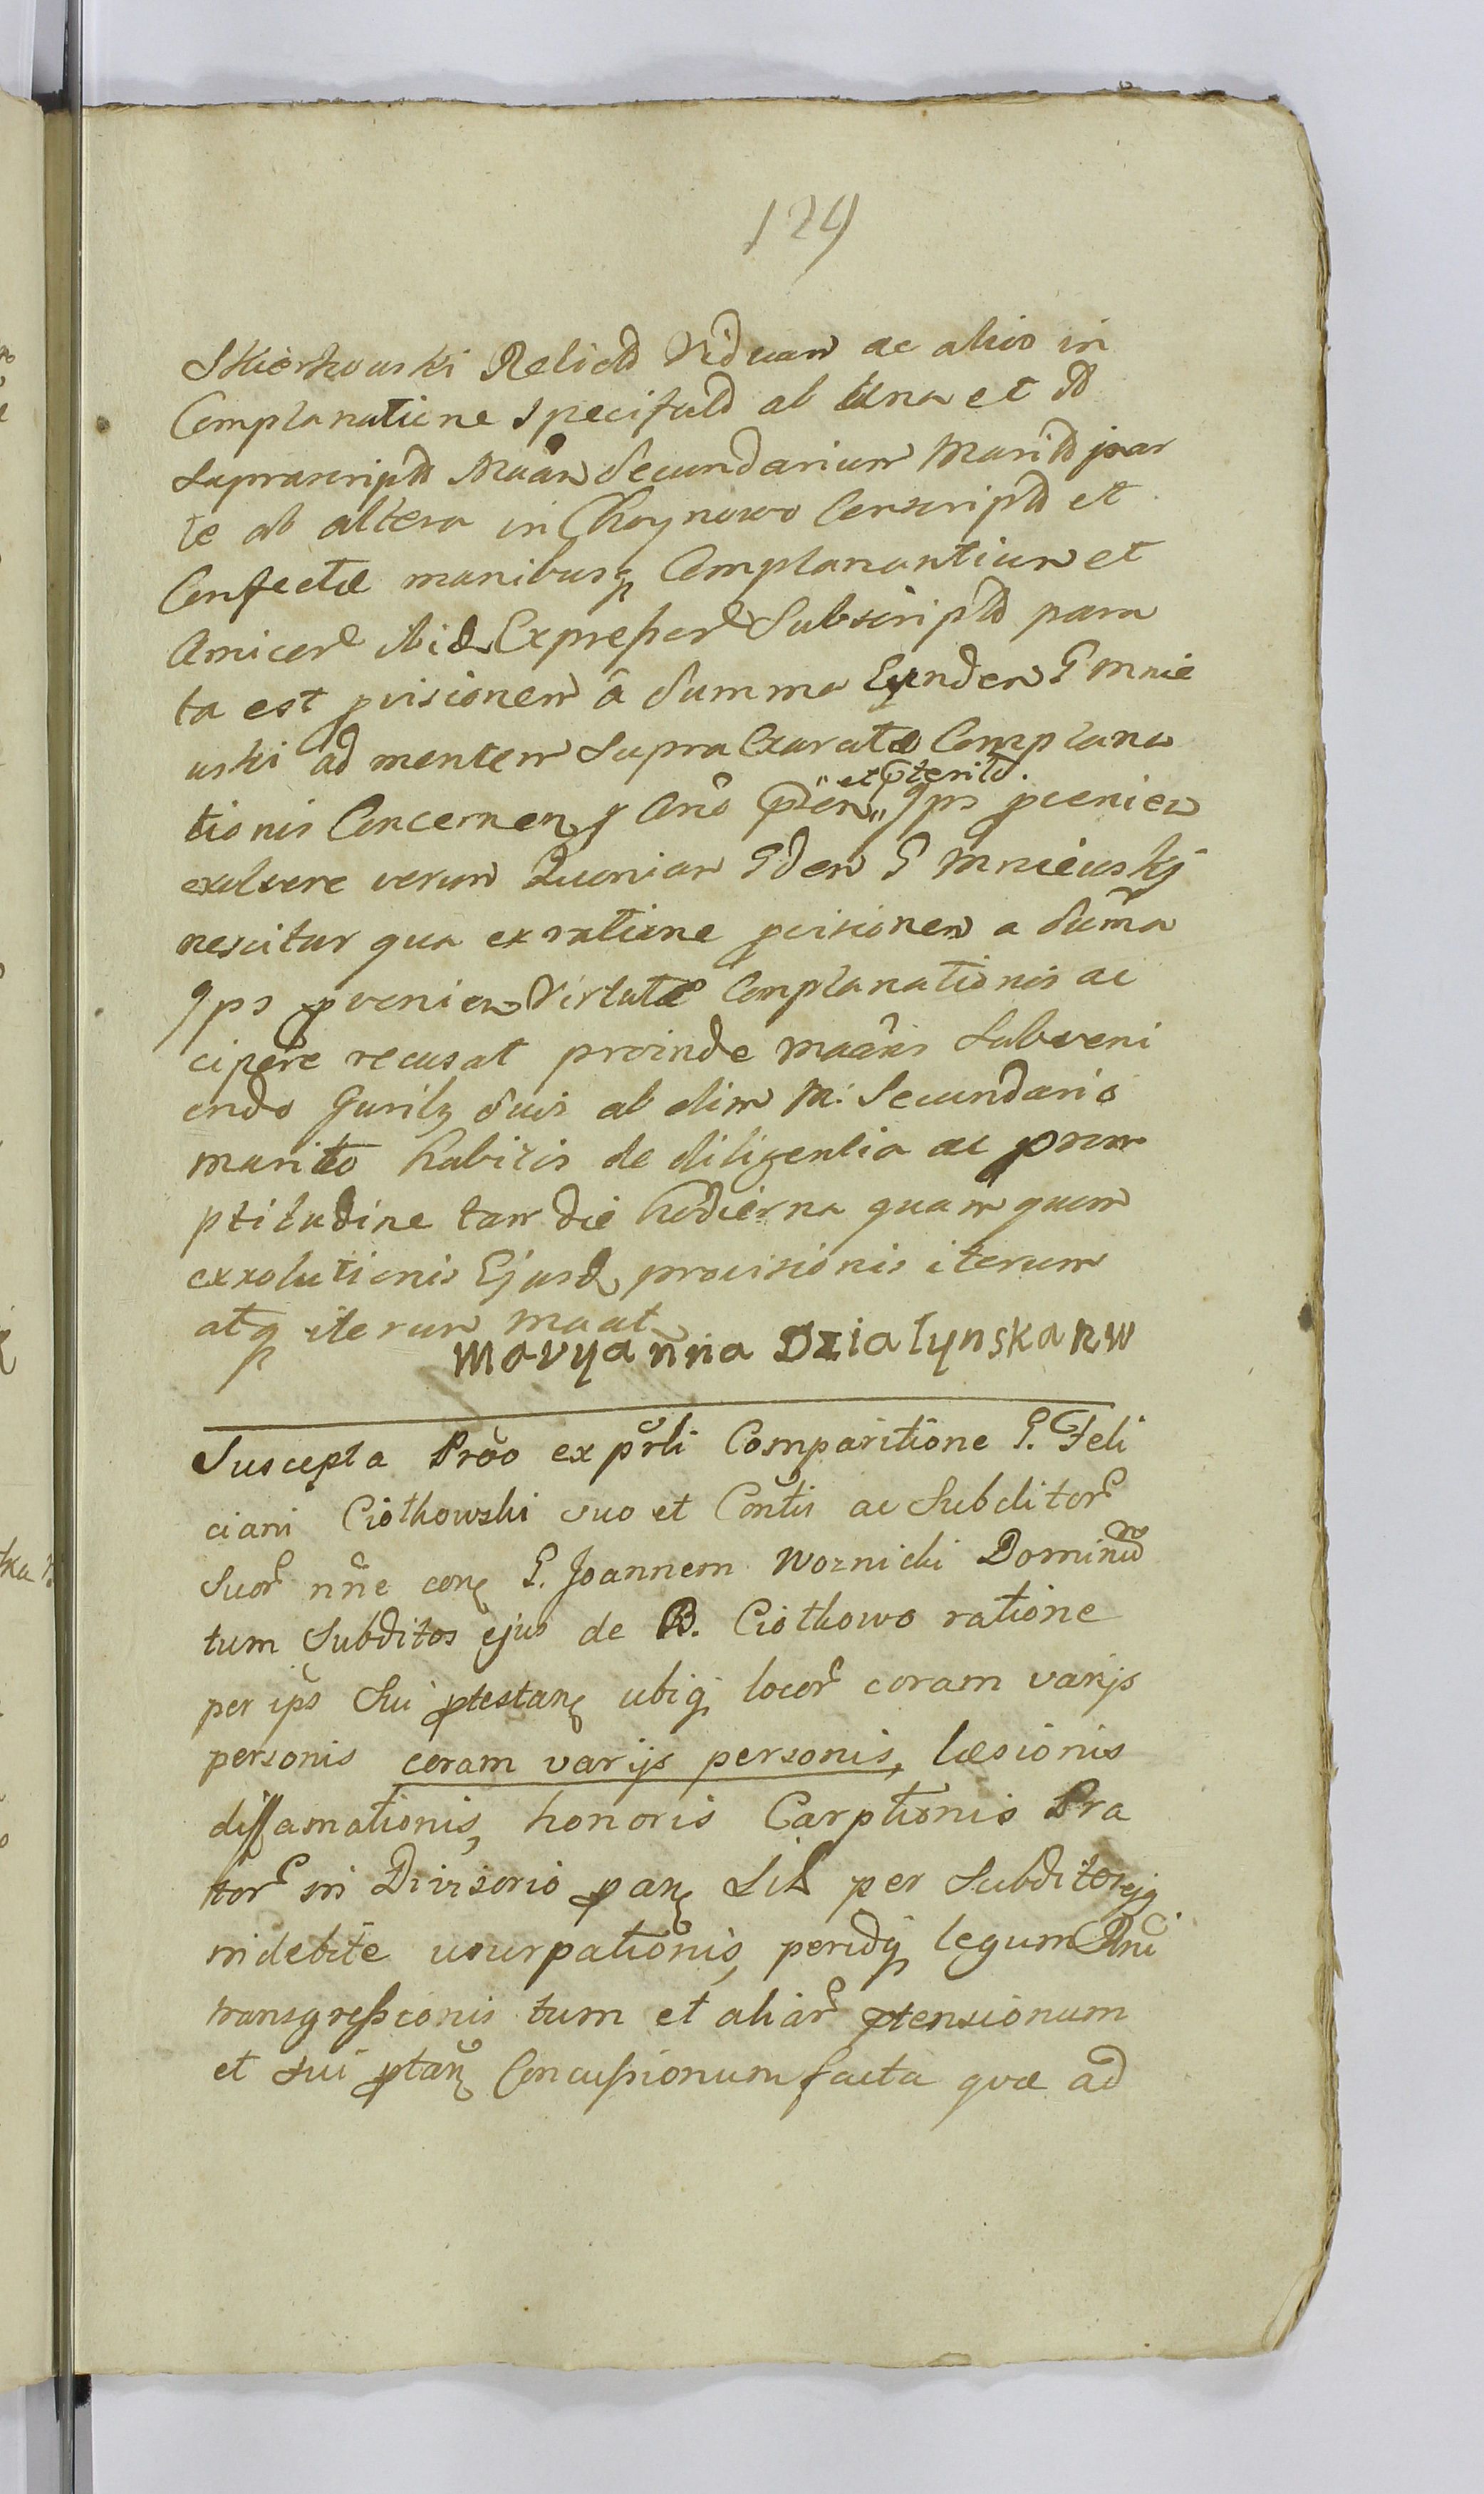 124
Skierkowski Relictã Viduam ac alios in
Complanatione Specificatã ab Una et
Suprascriptũ Maãn Secundarium Maritũ par
te ab altera in Choynowo Conscriptã et
Confectæ manibusq Complanantium et
Amicor ibid Expressor Subscriptã para
ta est pvisionem â Summa Eundem G Mnie
wski ad mentem Supra Exaratæ Complana
tionis Concernen
" et pteritũ.
exolvere verum Quoniam Idem G Mniewskj
nescitur qua ex ratione pvisionem a Summa
Ips pvenien Virtute Complanationis ac
cipere recusat proinde Maãns Subveni
endo Juribz Suis ab olim M: Secundario
marito habitis de diligentia ac prom
ptitudine tam die hodierna quam quam
exsolutionis Ejusd provisionis iterum
atq iterum Maat
Maryanna Działynska RW
Suscepta Prõo ex pũrli Comparitione G. Feli
ciani Ciotkowski suo et Cõntis ac Subditor
Suor nñe con G. Joannem Woznicki Dominũ
tum Subditos ejus de B. Ciotkowo ratione
per ips Sui ptestan ubiq locor coram varijs
personis coram varijs personis, læsionis
diffamationis, honoris Carptionis Pra
tor in Divisorio pan Sil per Subditos ejq
indebite usurpationis, peridq legum Rni
transgressionis tum et aliar ptensionum
et sui ptan Concussionum facta quæ ad